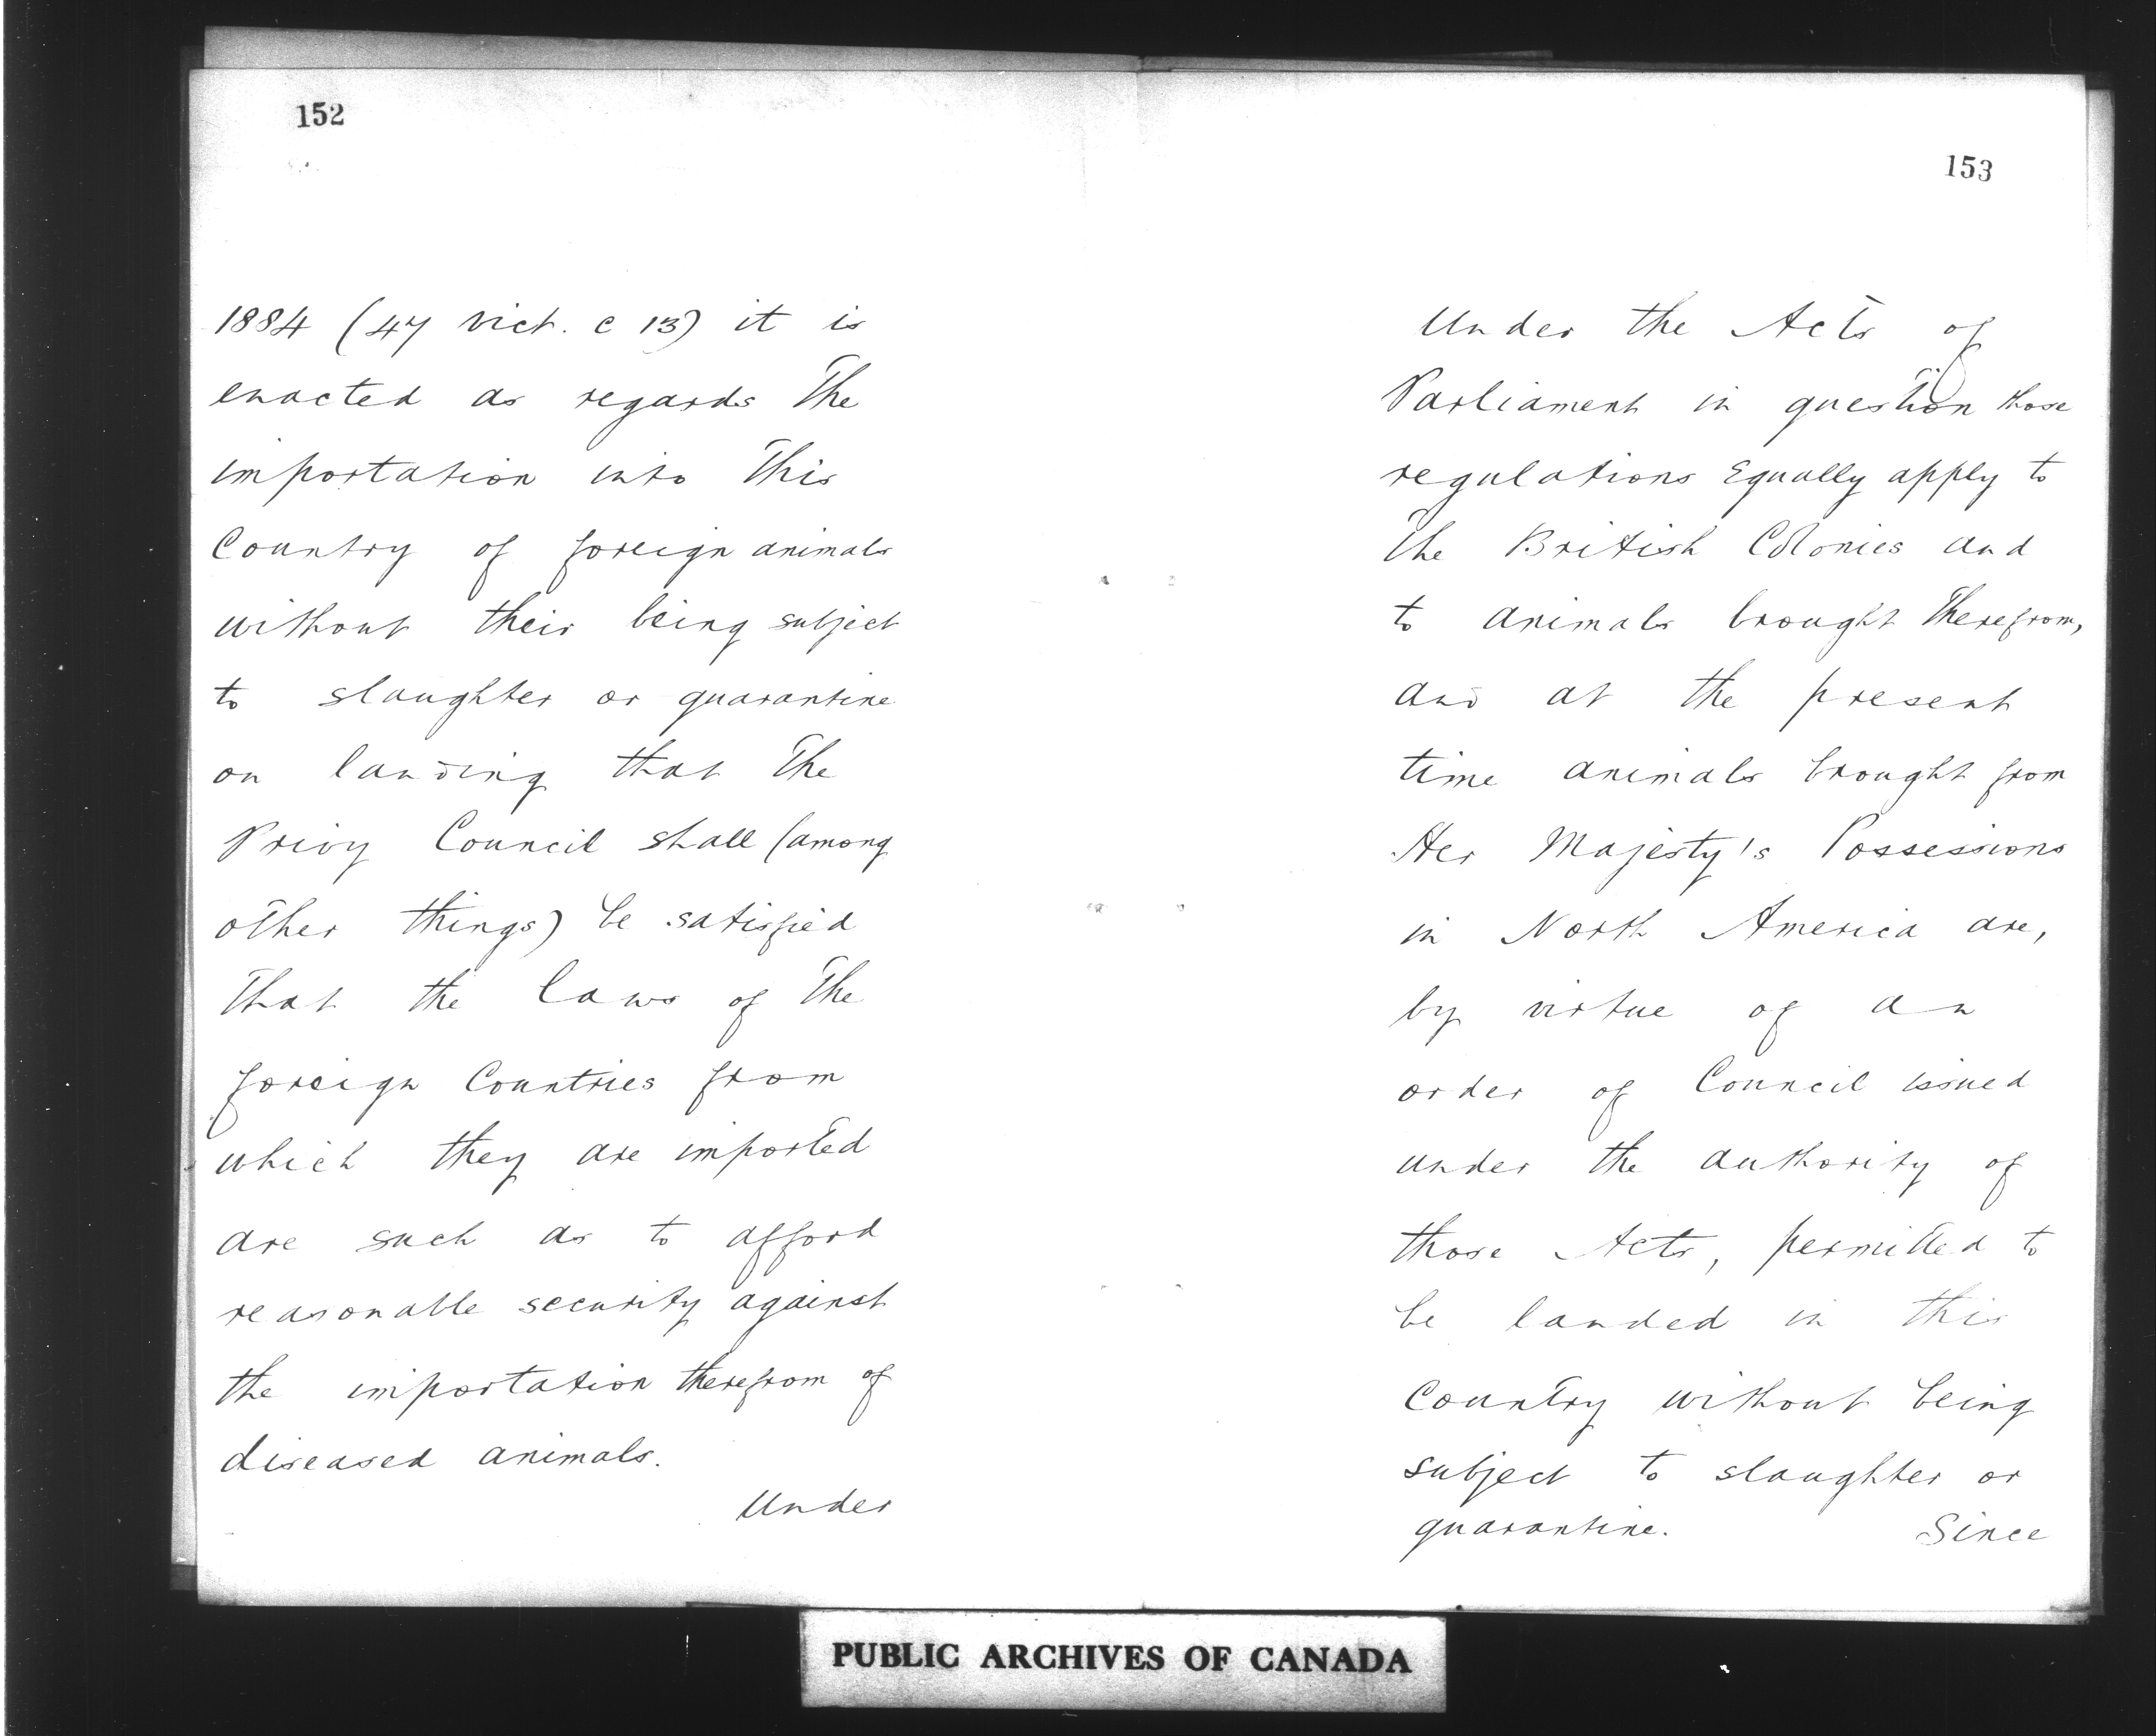 152
1884 (47 Vict. c 13) it is
enacted as regards the
importation into this
Country of foreign animals
without their being subject
to slaughter or quarantine
on landing that the
Privy Council shall (among
other things) be satisfied
that the laws of the
foreign Countries from
which they are imported
are such as to afford
reasonable security against
the importation therefrom of
diseased animals.
Under
153
Under the Acts of
Parliament in question those
regulations Equally apply to
the British Colonies and
to animals brought therefrom,
and at the present
time animals brought from
Her Majesty's Possessions
in North America are,
by virtue of an
order of Council issued
under the authority of
those Acts, permitted to
be landed in this
Country without being
subject to slaughter or
quarantine. Since
PUBLIC ARCHIVES OF CANADA